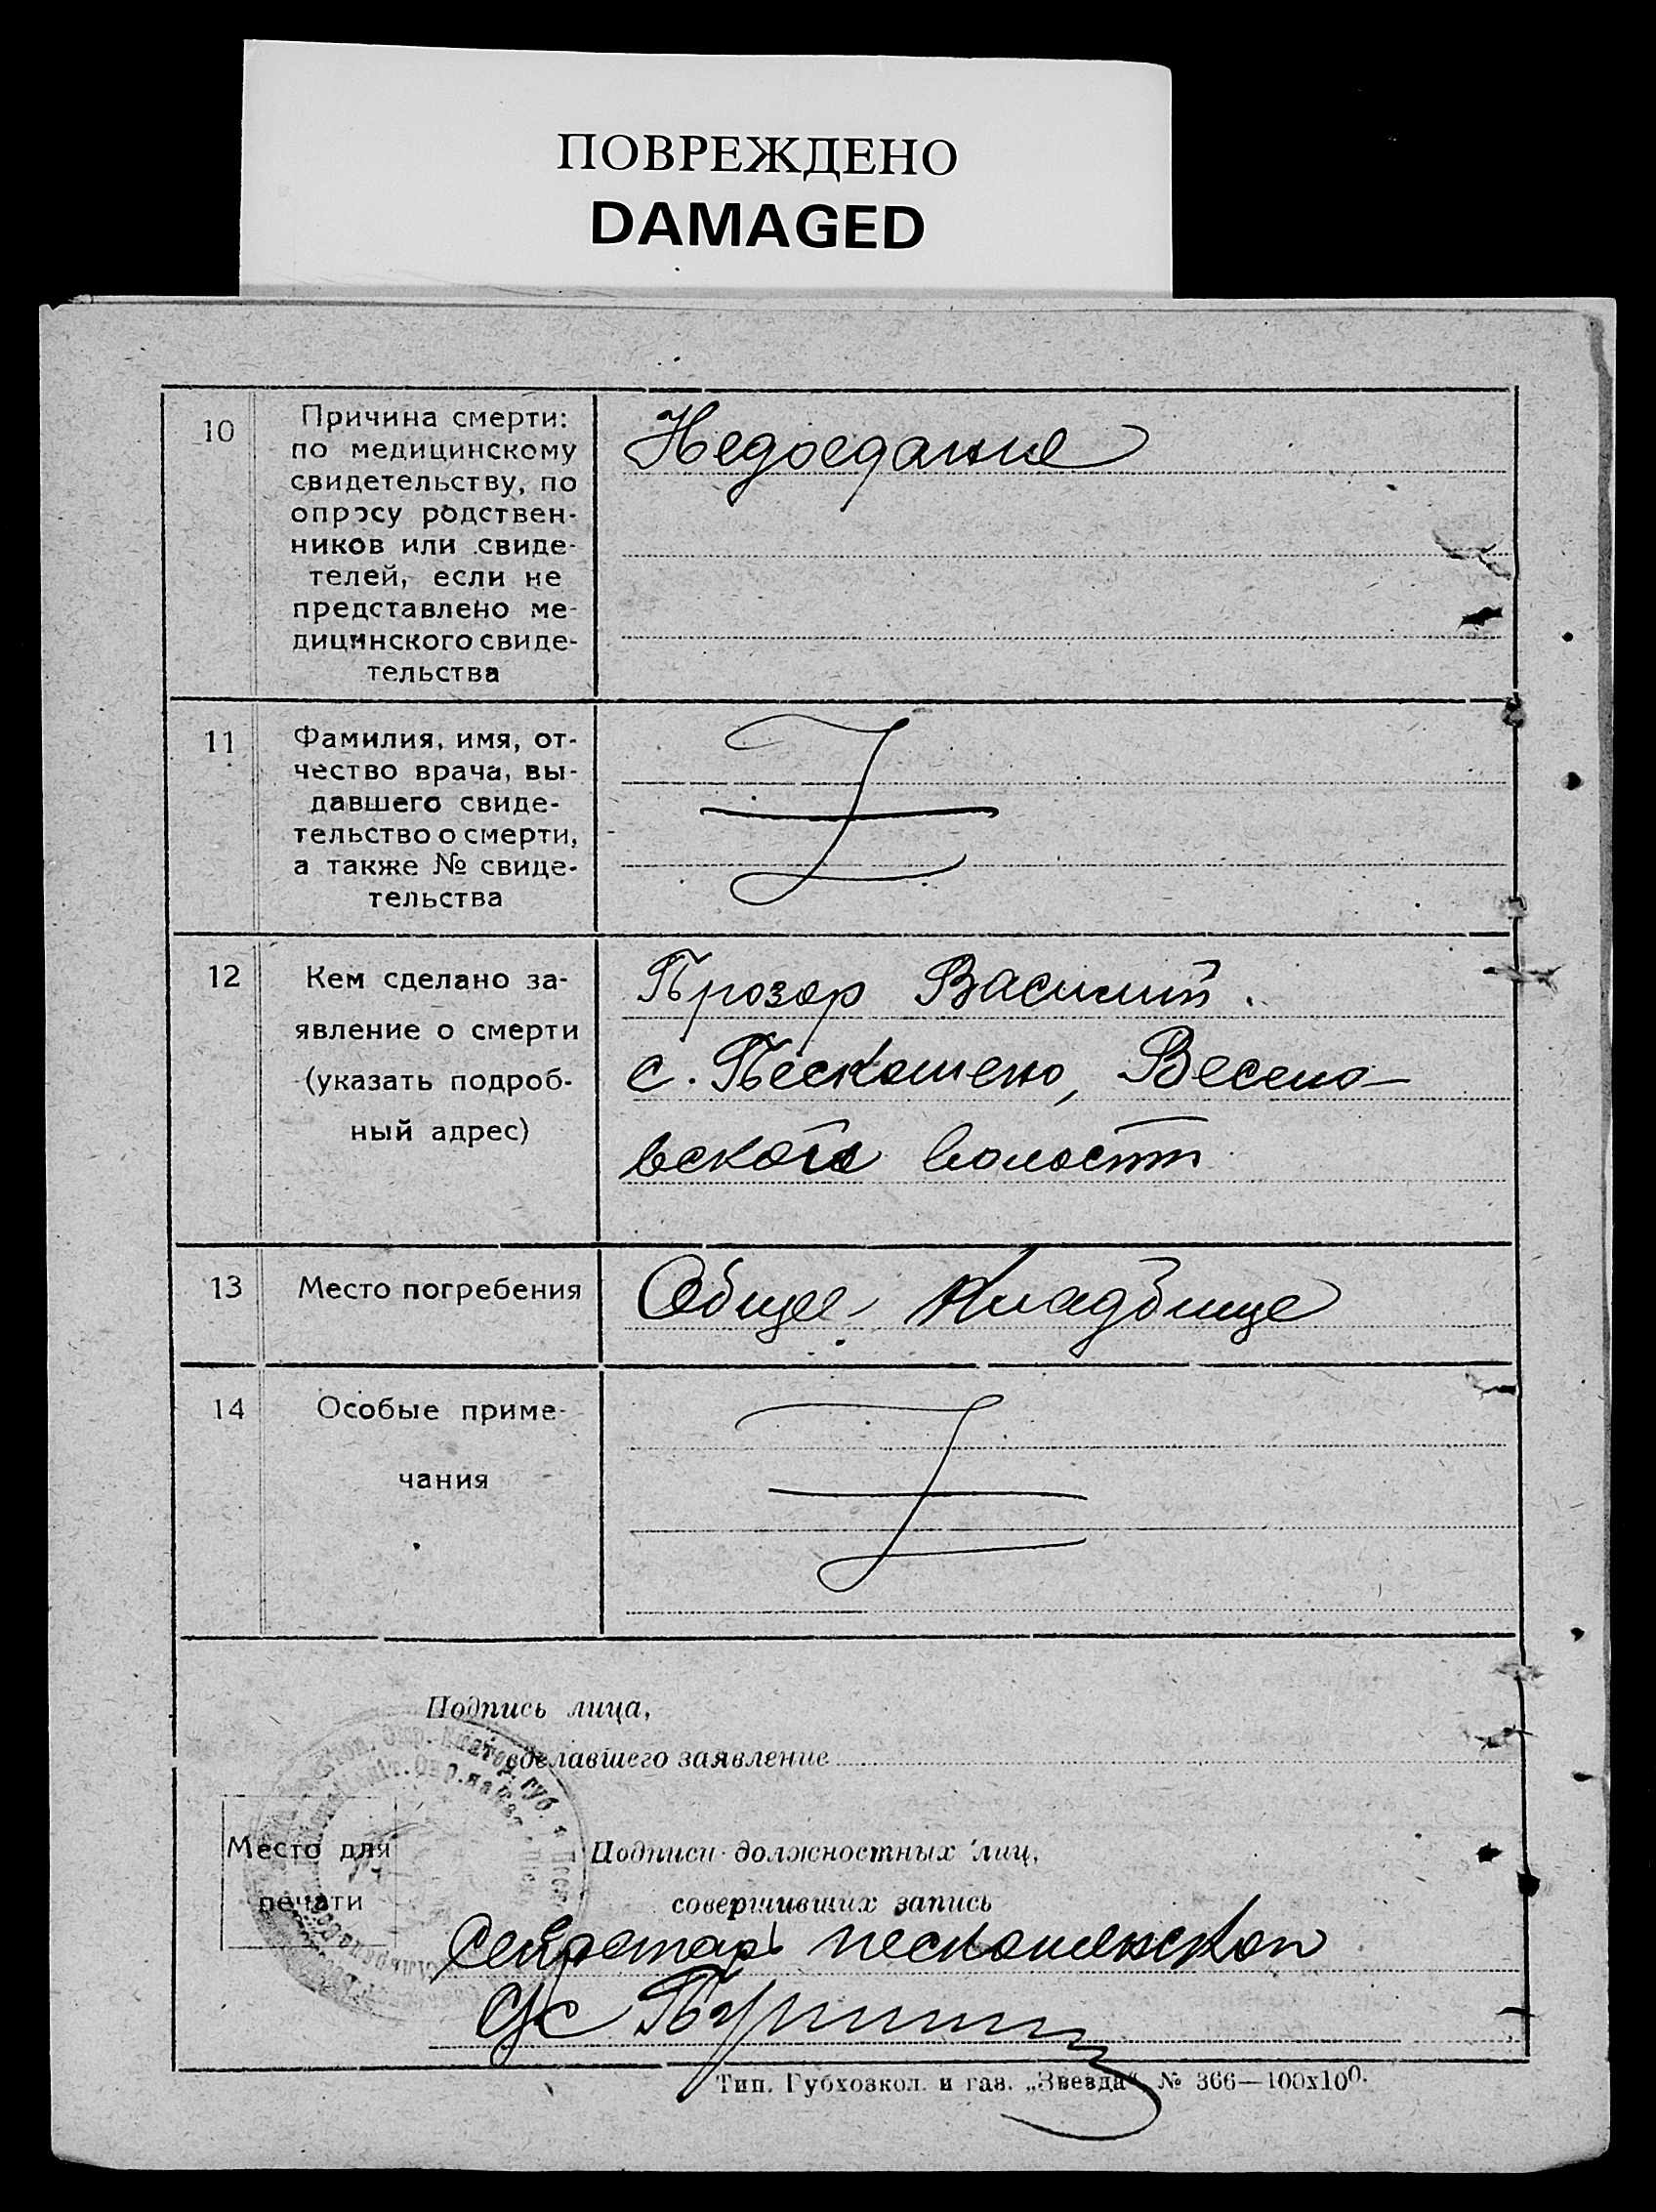 ПОВРЕЖДЕНО
DAMAGED
10
Причина смерти:
по медицинскому
свидетельству, по
опросу родствен-
ников или свиде-
телей, если не
представлено ме-
дицинского свиде-
тельства
Недоедание
11
Фамилия, имя, от-
чество врача, вы-
давшего свиде-
тельство о смерти,
а также № свиде-
тельства
12
Кем сделано за-
явление о смерти
(указать подроб-
ный адрес)
Прозор Василий.
с. Пескошено, Весело-
вской волости
13
Место погребения
Общее кладбище
14
Особые приме-
чания
Подпись лица,
сделавшего заявление
Место для
печати
Подписи должностных лиц,
совершивших запись
Секретарь
с/с
Тип. Губхозкол. и газ. „Звезда“ № 366—100х100.